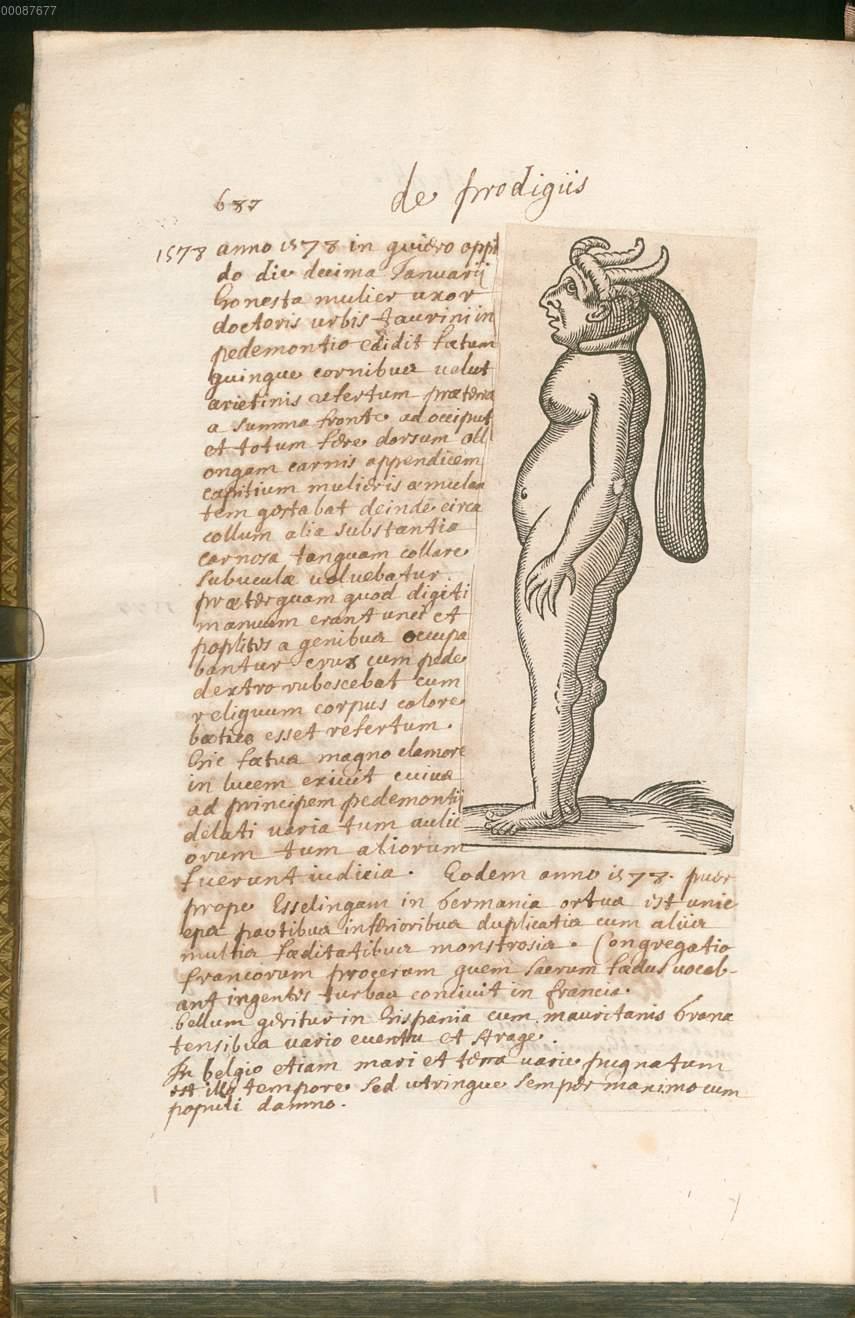 00087677
687
de prodigiis
1578 anno 1578 in quiero oppi
do die decima Januarij
honesta mulier uxor
doctoris urbis taurini in
pedemontio edidit fœtum
quinque cornibus velut
arietinis refertum præterea
a summa fronte ad occiput
et totum fere dorsum obl
ongam carnis appendicem
capitium mulieris æmulan
tem gestabat deinde circa
collum alia substantia
carnosa tanquam collare
subuculæ volvebatur.
præterquam quod digiti
manuum erant unci et
poplites a genibus occupa
bantur crus cum pede
dextro rubescebat cum
reliquum corpus colore
bœtico esset refertum.
hic fœtus magno clamore
in lucem exivit cuius
ad principem pedemontij
delati varia tum aulic
orum tum aliorum
fuerunt iudicia. Eodem anno 1578. puer
prope Esselingam in Germania ortus est unic
eps partibus inferioribus duplicatis cum aliis
multis fœditatibus monstrosis. Congregatio
francorum procerum quem sacrum fœdus vocab-
ant ingentes turbas concivit in francia.
bellum geritur in hispania cum mauritanis grana
tensibus vario eventu et strage.
In belgio etiam mari et terra varie pugnatum
est illo tempore sed utrinque semper maximo cum
populi damno.